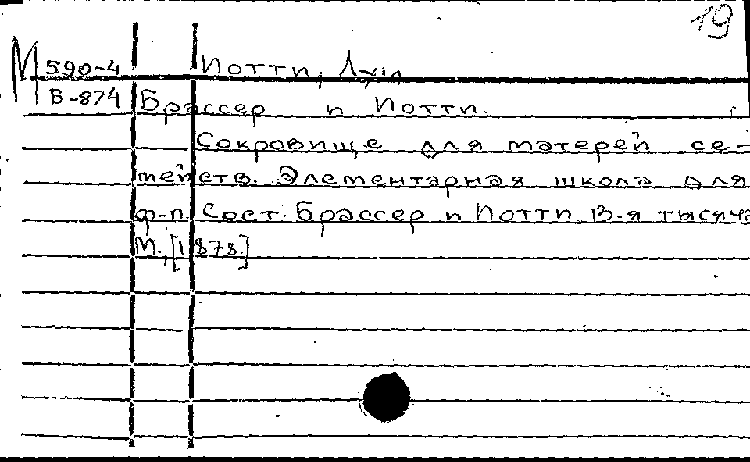 19
М 590-4 Потти, Луи
В-874 Брассер и Потти.
Сокровище для матерей се-
мейств. Элементарная школа для
ф-п. Сост. Брассер и Потти. 13-я тысяча
М., [1878]